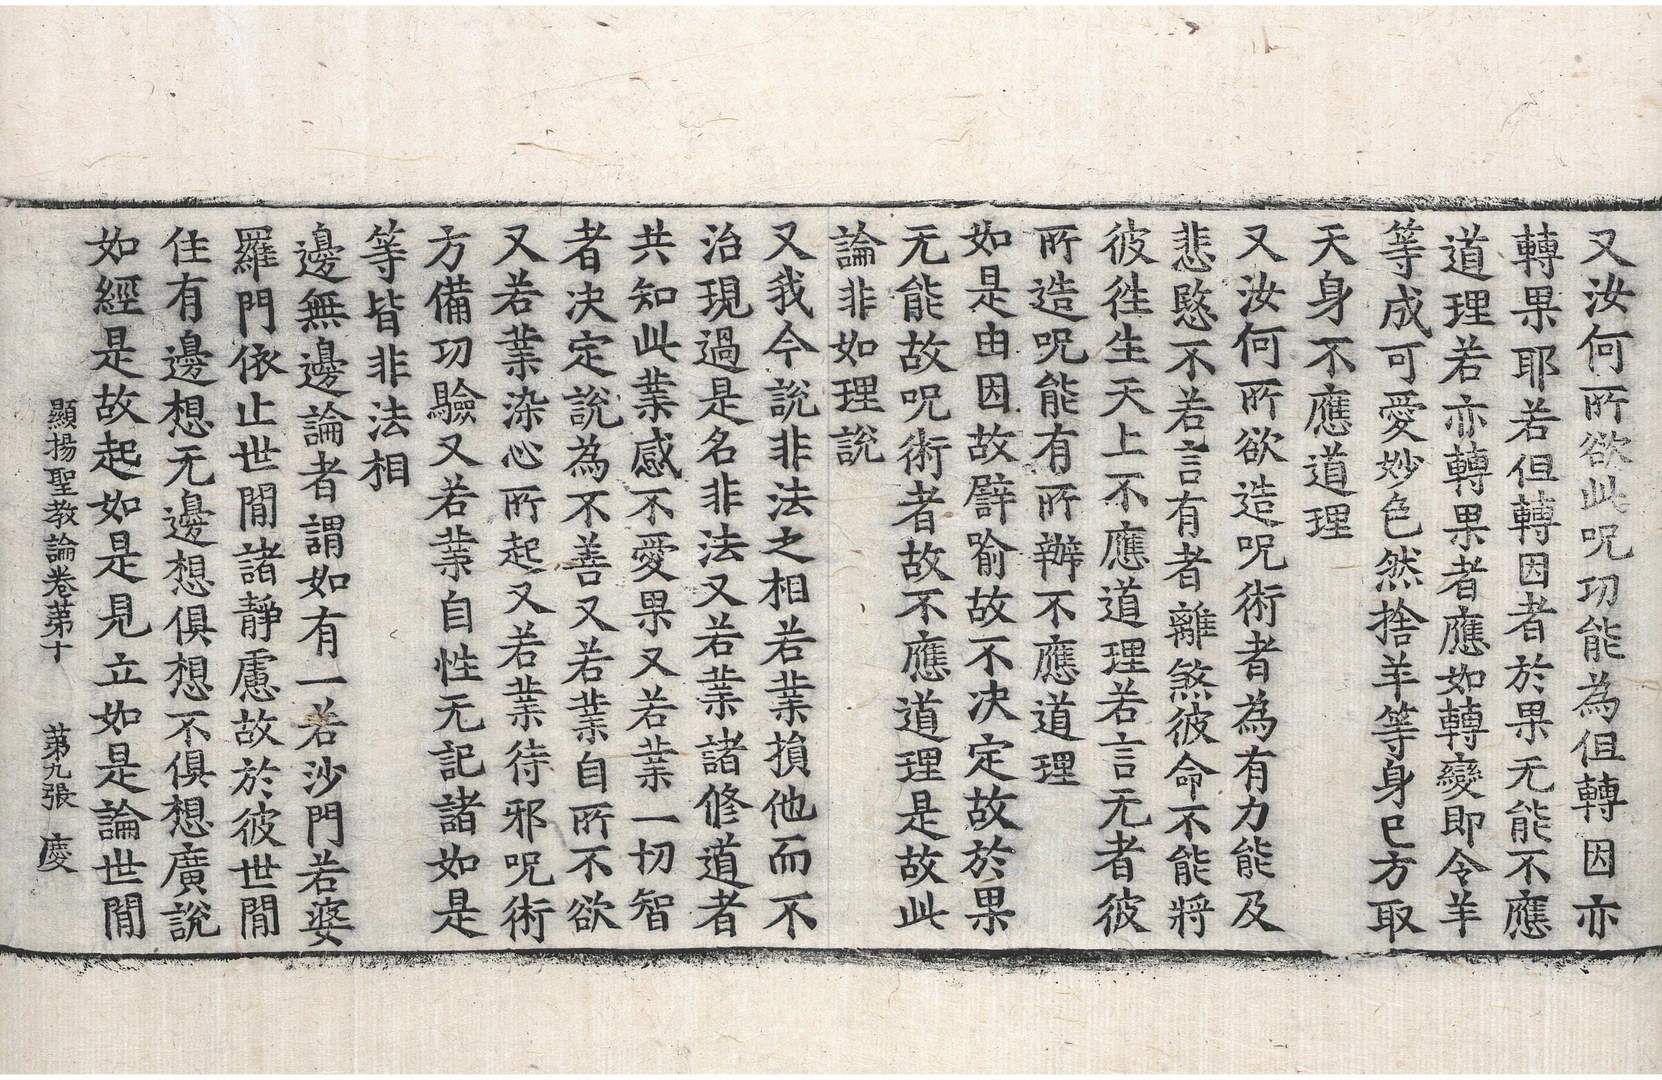 又汝何所欲此呪功能為但轉因亦
轉果耶若但轉因者於果无能不應
道理若亦轉果者應如轉變即令羊
等成可愛妙色然捨羊等身已方取
天身不應道理
又汝何所欲造呪術者為有力能及
悲愍不若言有者離煞彼命不能將
彼徃生天上不應道理若言无者彼
所造呪能有所辦不應道理
如是由因故譬喻故不决定故於果
无能故呪術者故不應道理是故此
論非如理說
又我今說非法之相若業損他而不
治現過是名非法又若業諸修道者
共知此業感不愛果又若業一切智
者决定說為不善又若業自所不欲
又若業染心所起又若業待邪呪術
方備功驗又若業自性无記諸如是
等皆非法相
邊無邊論者謂如有一若沙門若婆
羅門依止世間諸靜慮故於彼世間
住有邊想无邊想俱想不俱想廣說
如經是故起如是見立如是論世間
顯揚聖教論卷第十　第九張　慶